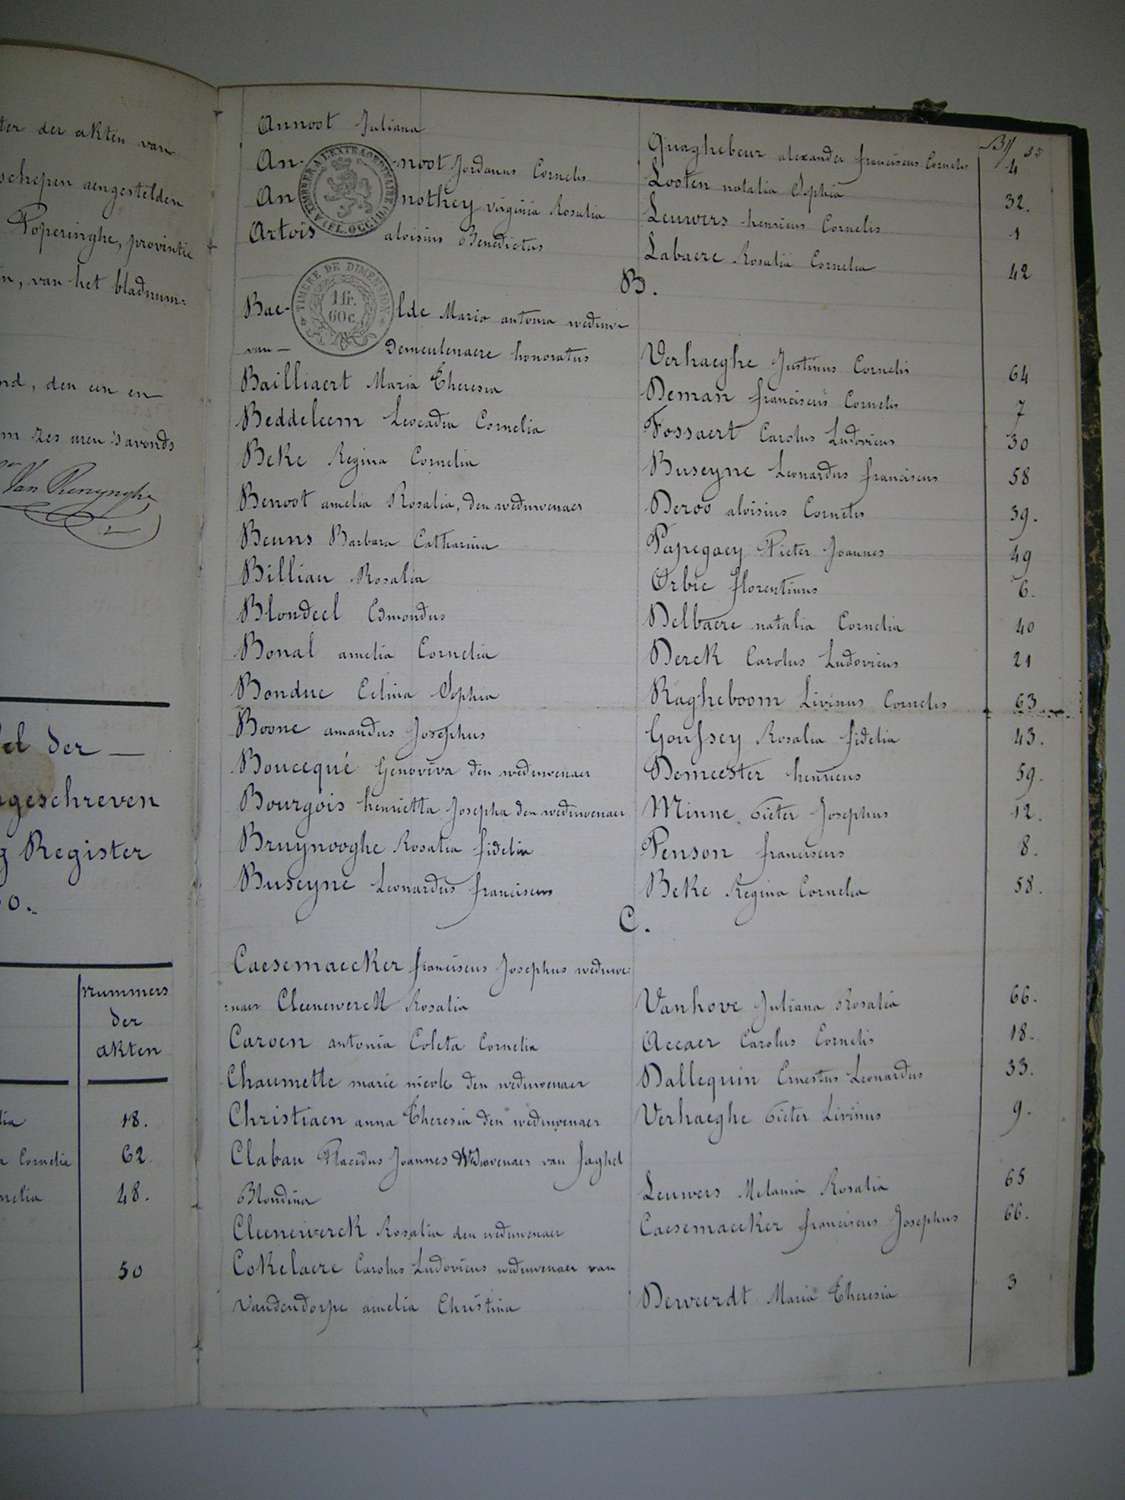 ter der akten van
schepen aengestelden
Poperinghe, provintie
n, van het bladnum-
ord, den een en
m zes uren 's avonds
Van Renynghe
el der —
ngeschreven
g Register
0.
nummers
der
akten
lia 18.
a Cornelia 62
rnelia 48.
50
Annoot Juliana Quaghebeur alexander franciscus Cornelis 4
An-noot Jordanus Cornelis Looten natalia Sophia 32.
Annothey virginia Rosalia Leuwers henricus Cornelis 1
Artois aloisius Benedictus Labaere Rosalia Cornelia 42
TIMBRE DE DIMENSION
1 fr.
60 c.
B.
Bae-lde Maria antonia weduwe
van — Demeulenaere honoratus Verhaeghe Justinus Cornelis 64
Bailliaert Maria Theresia Deman franciscus Cornelis 7
Beddeleem Leocadia Cornelia Fossaert Carolus Ludovicus 30
Beke Regina Cornelia Buseyne Leonardus franciscus 58
Benoot amelia Rosalia, den weduwenaer Deroo aloisius Cornelis 39.
Beuns Barbara Catharina Papegaey Pieter Joannes 49
Billiau Rosalia Orbie florentinus 6.
Blondeel Edmondus Delbaere natalia Cornelia 40
Bonal amelia Cornelia Derck Carolus Ludovicus 21
Bonduc Celina Sophia Ragheboom Livinus Cornelis 63
Boone amandus Josephus Goussey Rosalia fidelia 43.
Boucequé Genoviva den weduwenaer Demeester henricus 59.
Bourgois henrietta Josepha den weduwenaer Minne Pieter Josephus 12.
Bruynooghe Rosalia fidelia Penson franciscus 8.
Buseyne Leonardus franciscus Beke Regina Cornelia 58.
C.
Caesemaecker franciscus Josephus weduwe
naer Cleenewerck Rosalia Vanhove Juliana Rosalia 66.
Caroen antonia Coleta Cornelia Accaer Carolus Cornelis 18.
Chaumette marie nicole den weduwenaer Dallequin Ernestus Leonardus 33.
Christiaen anna Theresia den weduwenaer Verhaeghe Pieter Livinus 9.
Clabau Placidus Joannes Weduwenaer van Jaghel
Blondina Leuwers Melania Rosalia 65
Cleenewerck Rosalia den weduwenaer Caesemaecker franciscus Josephus 66.
Cokelaere Carolus Ludovicus weduwenaer van
Vandendorpe amelia Christina Deweerdt Maria Theresia 3